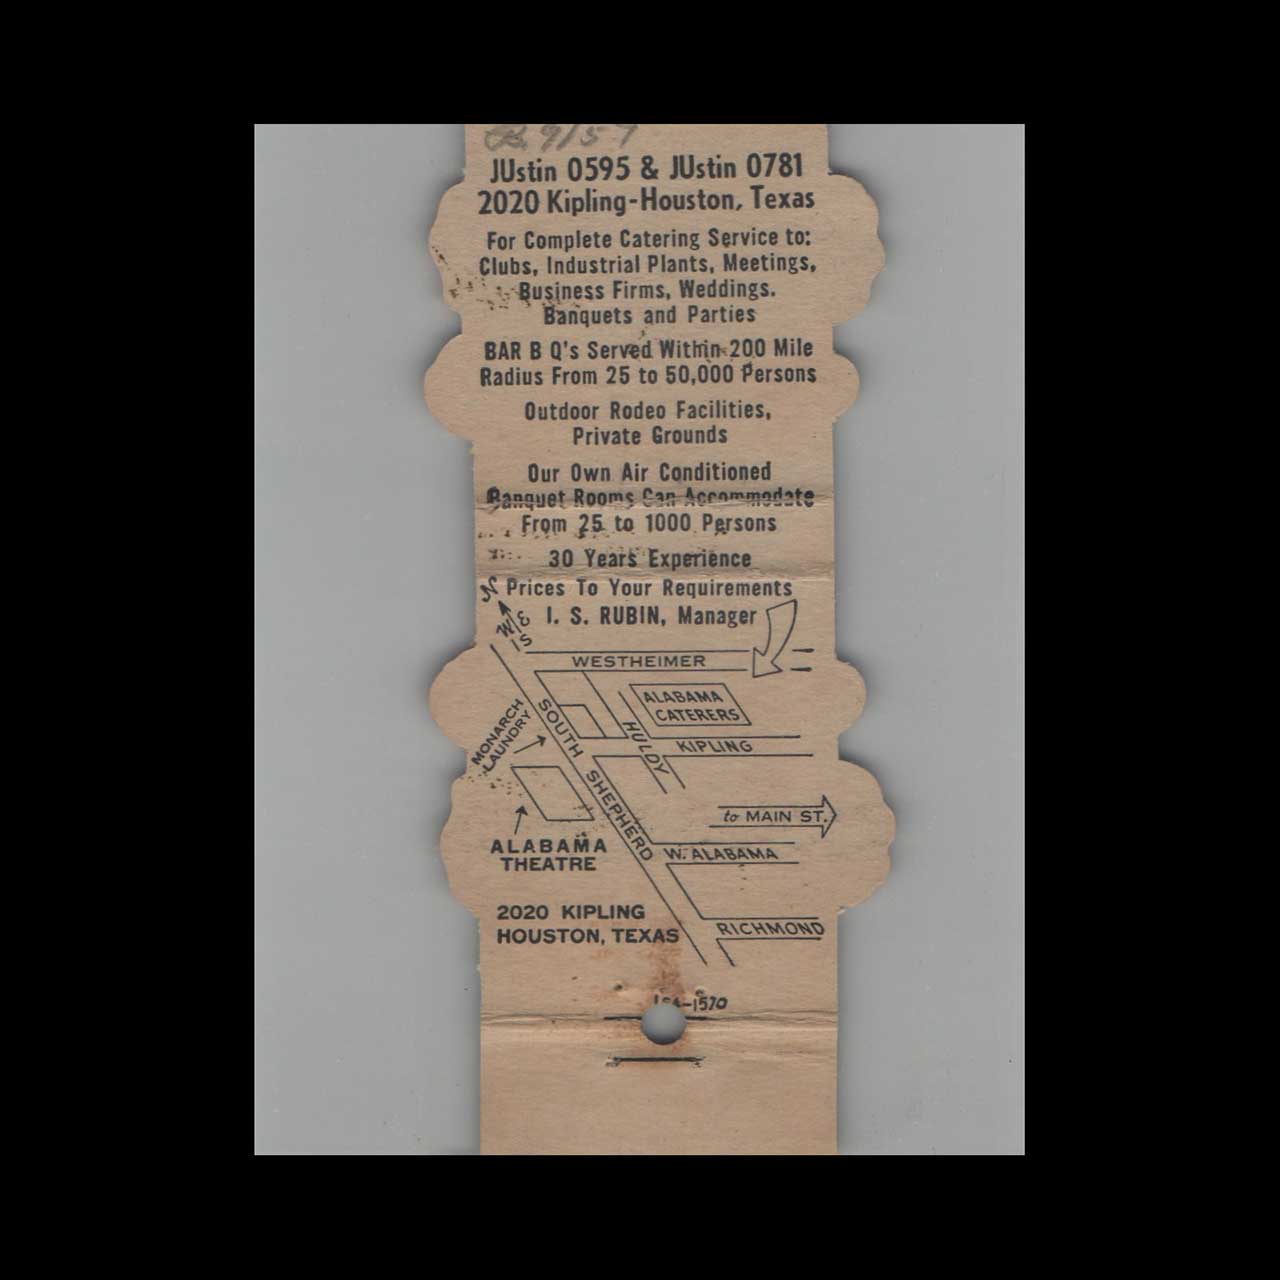 9/57
JUstin 0595 & JUstin 0781
2020 Kipling-Houston, Texas
For Complete Catering Service to:
Clubs, Industrial Plants, Meetings,
Business Firms, Weddings.
Banquets and Parties
BAR B Q's Served Within 200 Mile
Radius From 25 to 50,000 Persons
Outdoor Rodeo Facilities,
Private Grounds
Our Own Air Conditioned
Banquet Rooms Can Accommodate
From 25 to 1000 Persons
30 Years Experience
Prices To Your Requirements
I. S. RUBIN, Manager
N
W E
S
WESTHEIMER
ALABAMA
CATERERS
MONARCH
LAUNDRY
SOUTH SHEPHERD
HULDY
KIPLING
to MAIN ST.
ALABAMA
THEATRE
W. ALABAMA
2020 KIPLING
HOUSTON, TEXAS
RICHMOND
-1570